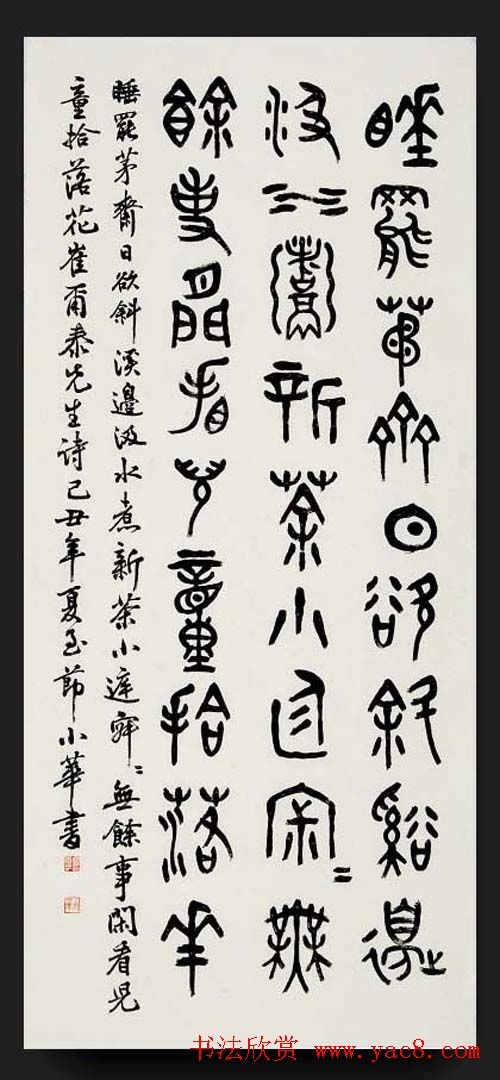 睡罷茅齋日欲斜谿邊
汲水煮新茶小庭寂〻無
餘事閒看兒童拾落花
睡罷茅齋日欲斜溪邊汲水煮新茶小庭寂〻無餘事閑看兒
童拾落花崔爾泰先生詩己丑年夏至節小華書
书法欣赏 www.yac8.com